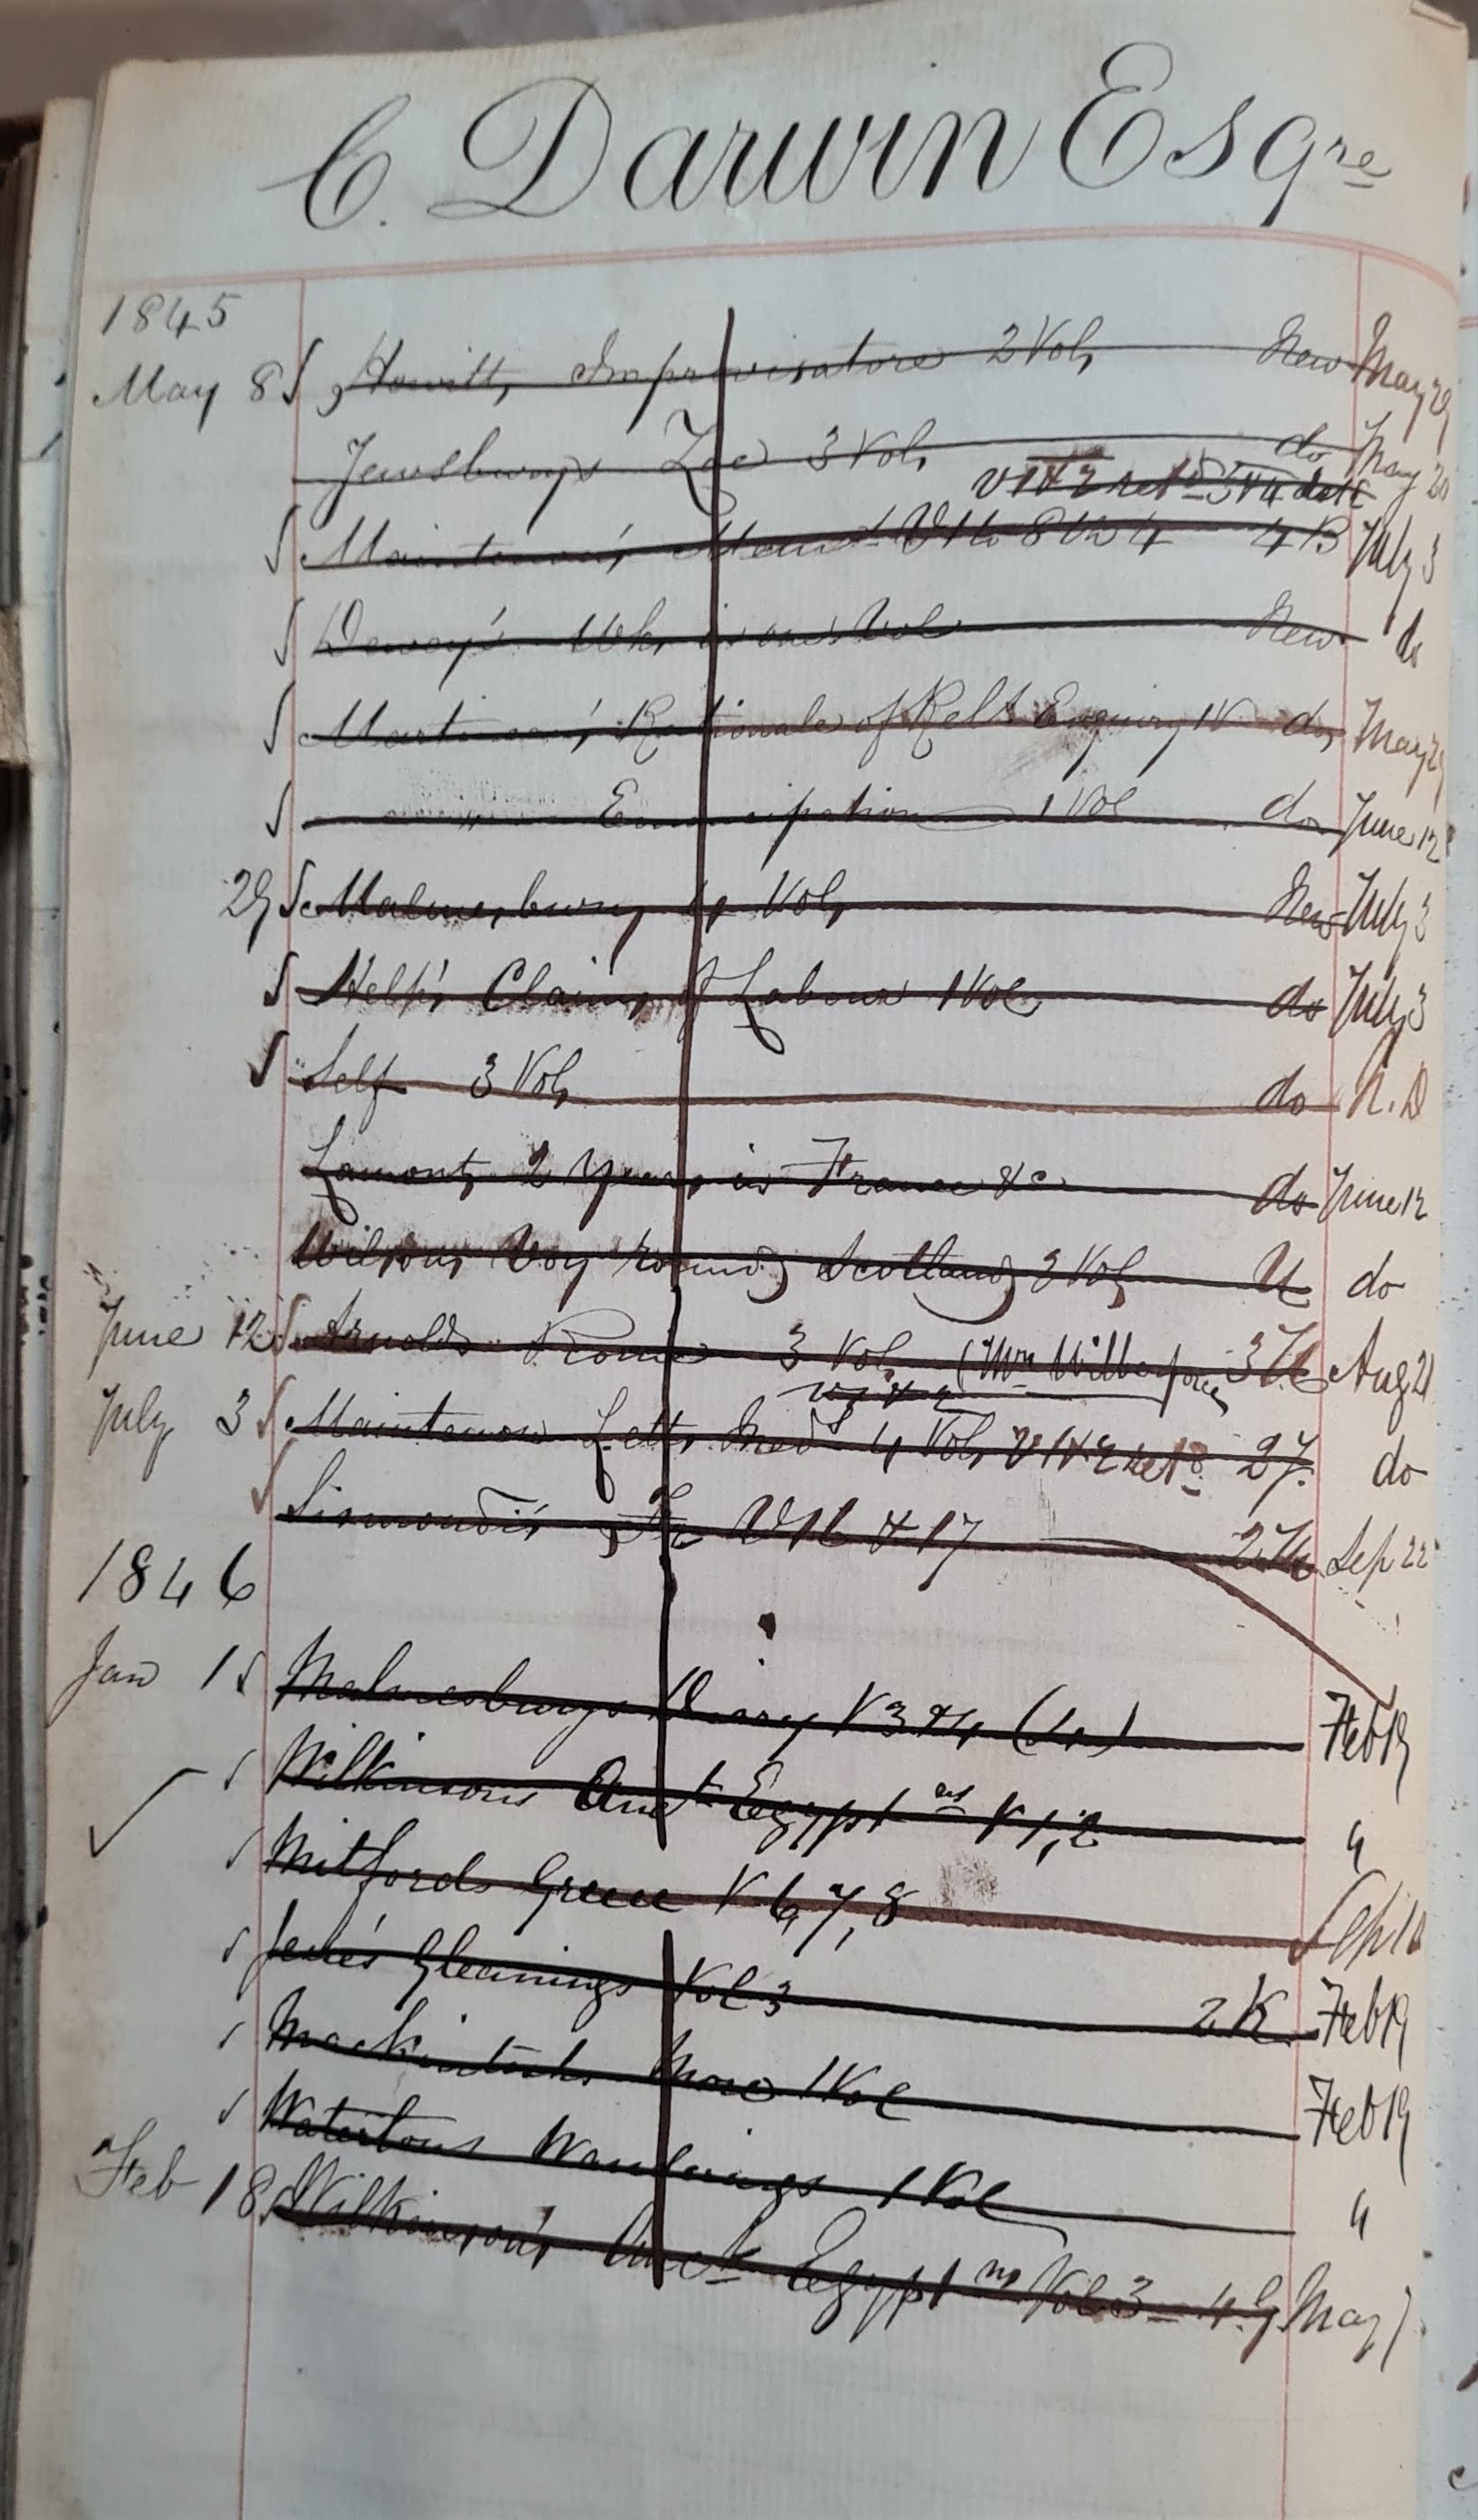 C. Darwin Esqre
1845
May 8 Howitts Improvisatore 2 Vols New May 29
Jewsburys Zoe 3 Vols do May 20
V 1 & 2 retd 3 & 4
Maintenon's V 1 to 8 in 4 4 B July 3
Dewey's Wks in one Vol New do
Martineau's Rationale of Rels Enquiry 1 V do May 29
" Emancipation 1 Vol do June 12
29 Malmesbury 4 Vols New July 3
Help's Claims of Labour 1 Vol do July 3
Self 3 Vols do N. D
Lamonts 2 Years in France &c do June 12
Wilsons Voy round Scotland 2 Vols U do
June 12 Arnolds Rome 3 Vols (Mrs Wilberforce Aug 21
V 1 & 2
July 3 Maintenon Letts 4 Vols V 1 & 2 retd 27. do
Sismondi's Fr V 16 & 17 Sep 22
1846
Jan 1 Malmesburys Diary V 3 & 4 (4) Feb 19
Wilkinsons Anct Egyptns V 1, 2 "
Mitfords Greece V 6, 7, 8 Sep 10
Jesse's Gleanings Vol 3 2 K Feb 19
Mackintoshs More 1 Vol Feb 19
Watertons Wanderings 1 Vol "
Feb 18 Wilkinson's Anct Egyptns Vol 3 May 7